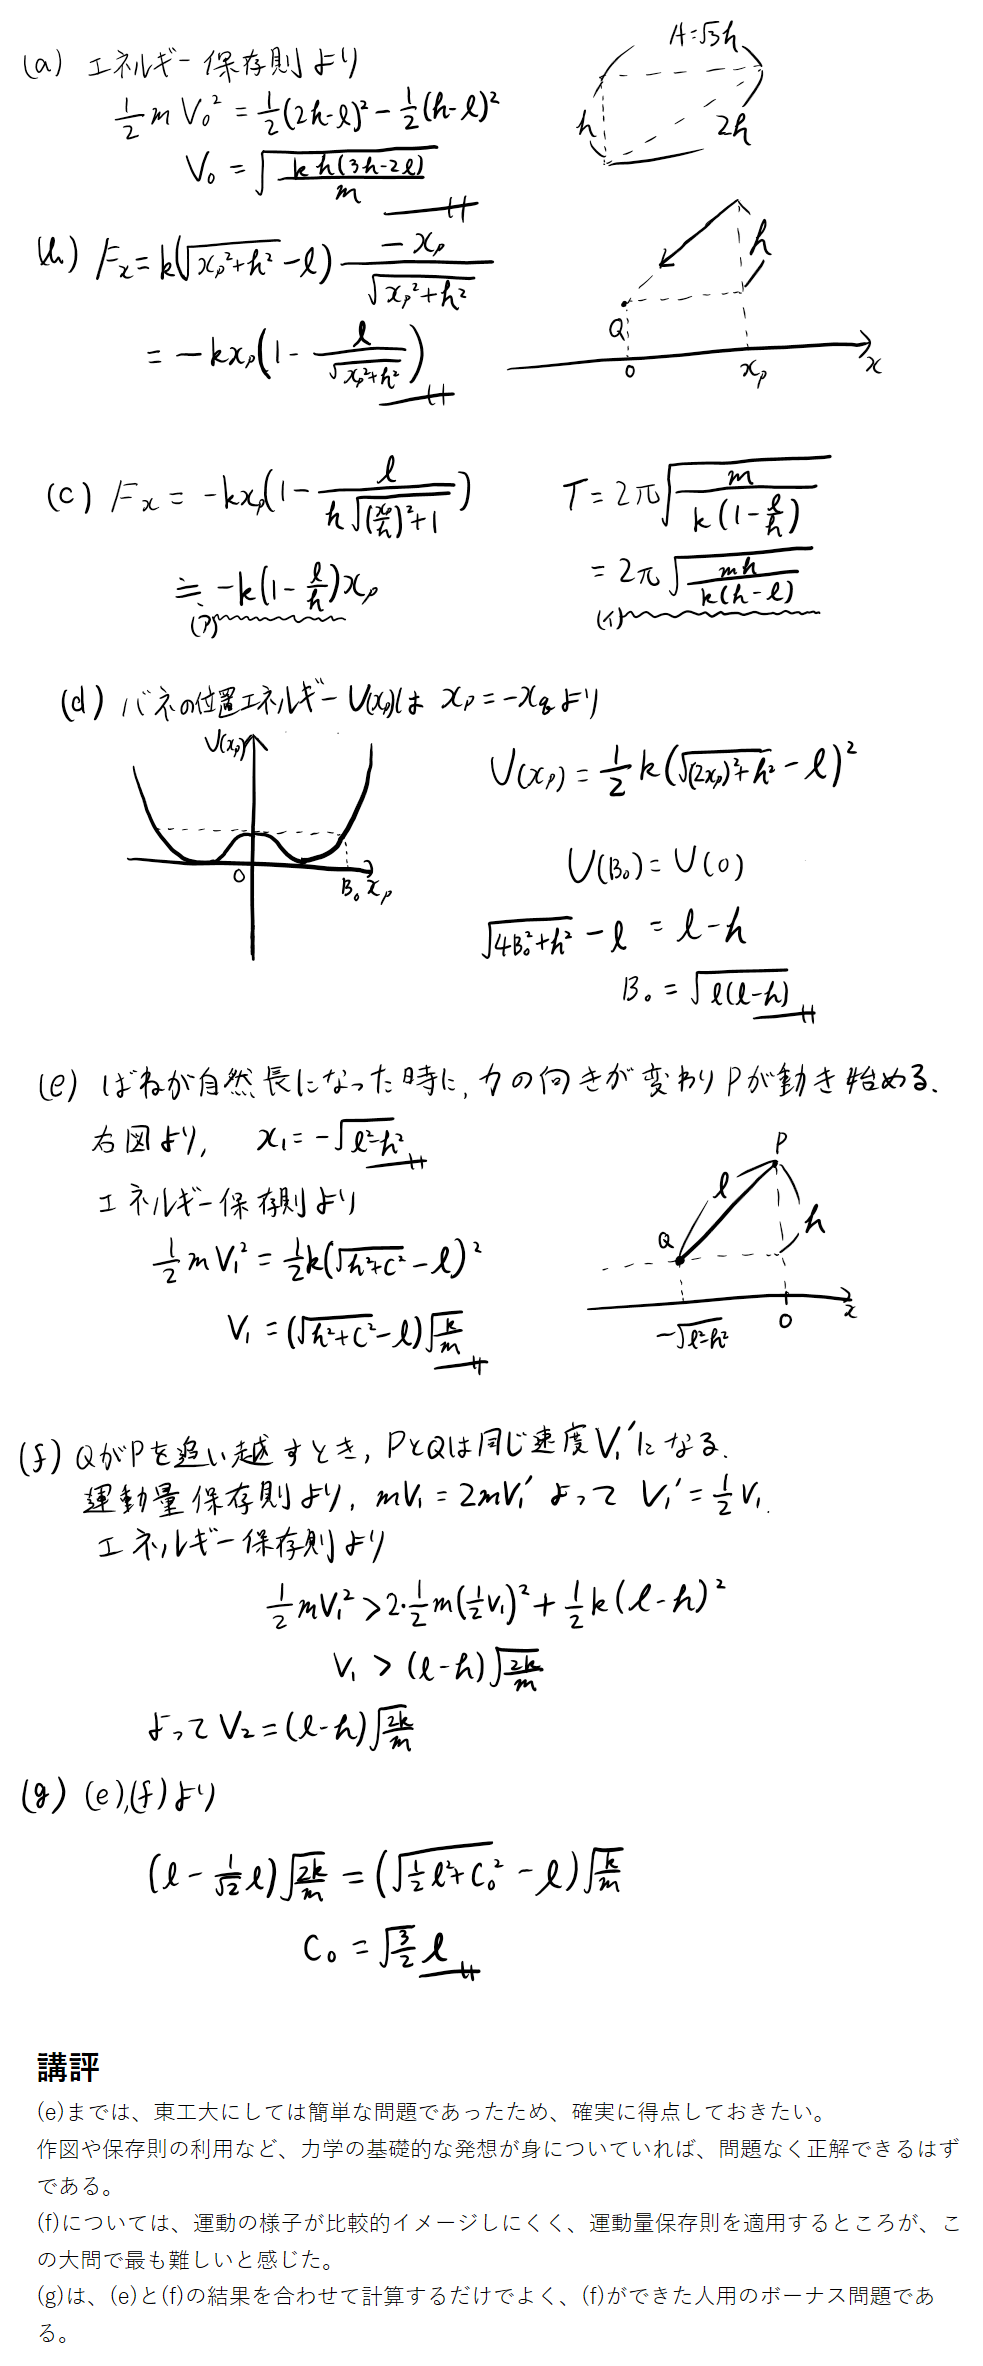 (a) エネルギー保存則より
A=√3h
½mV₀² = ½(2h-l)² - ½(h-l)²
h
2h
V₀ = √(kh(3h-2l)/m)
(b) Fx = k(√(xp²+h²) - l) -xp/√(xp²+h²)
h
Q
= -kxp(1 - l/√(xp²+h²))
0 xp x
(c) Fx = -kxp(1 - l/(h√((xp/h)²+1)))
T = 2π√(m/(k(1-l/h)))
≒ -k(1-l/h)xp
(ア)
= 2π√(mh/(k(h-l)))
(イ)
(d) バネの位置エネルギーU(xp)は xp = -xqより
U(xp)
U(xp) = ½k(√((2xp)²+h²) - l)²
0 B₀ xp
U(B₀) = U(0)
√(4B₀²+h²) - l = l-h
B₀ = √(l(l-h))
(e) ばねが自然長になった時に,力の向きが変わりPが動き始める.
右図より, x₁ = -√(l²-h²)
P
l
h
Q
エネルギー保存則より
½mV₁² = ½k(√(h²+C²) - l)²
-√(l²-h²) 0 x
V₁ = (√(h²+C²) - l)√(k/m)
(f) QがPを追い越すとき, PとQは同じ速度V₁'になる.
運動量保存則より, mV₁ = 2mV₁' よって V₁' = ½V₁.
エネルギー保存則より
½mV₁² > 2・½m(½V₁)² + ½k(l-h)²
V₁ > (l-h)√(2k/m)
よって V₂ = (l-h)√(2k/m)
(g) (e),(f)より
(l - 1/√2 l)√(2k/m) = (√(½l²+C₀²) - l)√(k/m)
C₀ = √(3/2) l
講評
(e)までは、東工大にしては簡単な問題であったため、確実に得点しておきたい。
作図や保存則の利用など、力学の基礎的な発想が身についていれば、問題なく正解できるはず
である。
(f)については、運動の様子が比較的イメージしにくく、運動量保存則を適用するところが、こ
の大問で最も難しいと感じた。
(g)は、(e)と(f)の結果を合わせて計算するだけでよく、(f)ができた人用のボーナス問題であ
る。